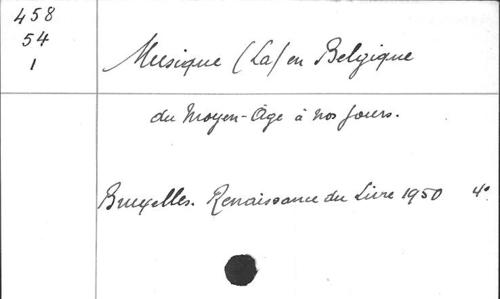 458
54
1
Musique (La) en Belgique
du Moyen-Âge à nos jours.
Bruxelles. Renaissance du Livre 1950 4°